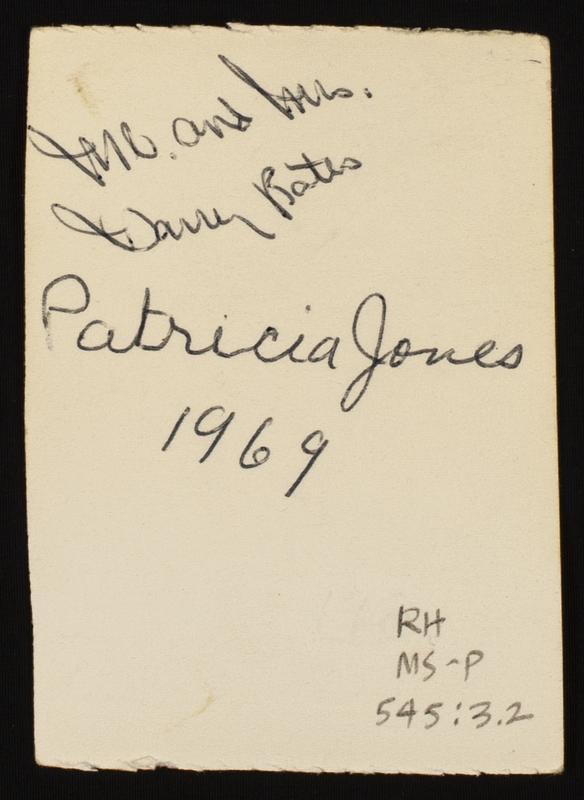 Mr. and Mrs.
Bates
Patricia Jones
1969
RH
MS-P
545:3.2